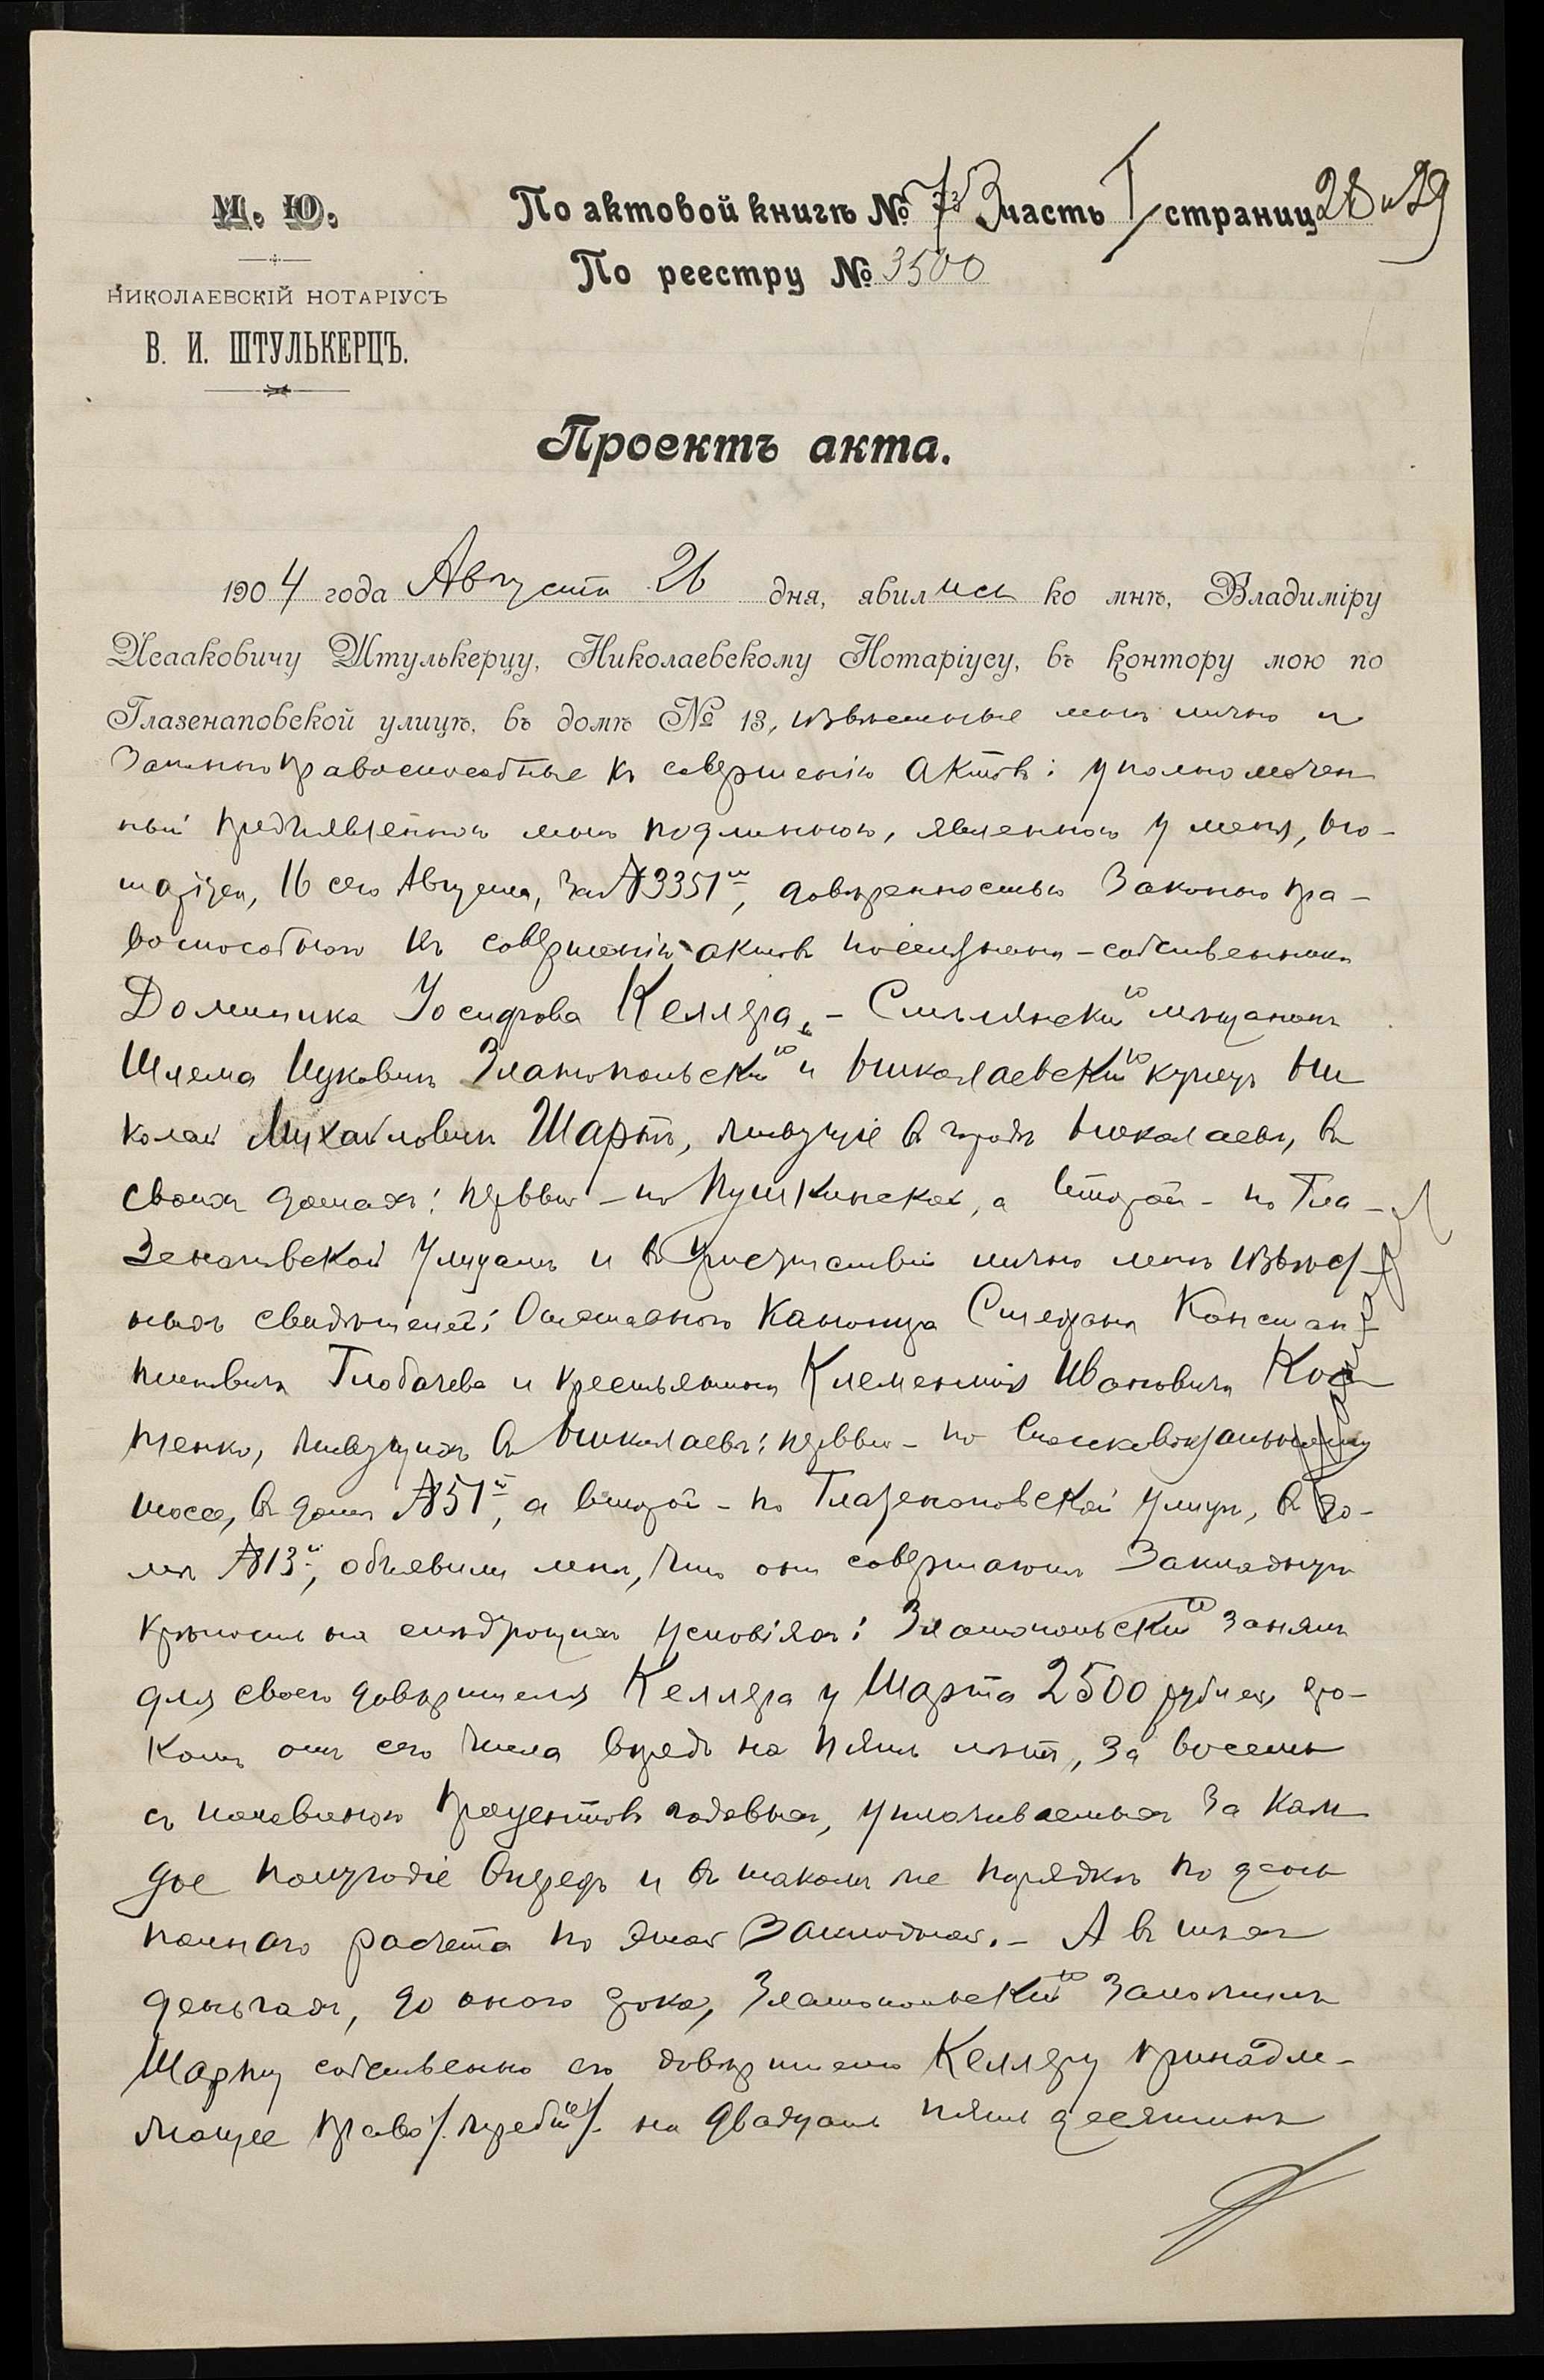 М. Ю.
НИКОЛАЕВСКІЙ НОТАРІУСЪ
В. И. ШТУЛЬКЕРЦЪ.
По актовой книгѣ № 73 часть I страниц 28 и 29
По реестру № 3500
Проектъ акта.
1904 года Августа 26 дня, явились ко мнѣ, Владиміру
Исааковичу Штулькерцу, Николаевскому Нотаріусу, въ контору мою по
Глазенаповской улицѣ, въ домѣ № 13, извѣстные мнѣ лично и
законно правоспособные къ совершенію актовъ: уполномочен
ный предъявленною мнѣ подлинною, явленною у меня, но-
таріуса, 16 сего Августа, за №3351ъ, довѣренностью законно пра-
воспособнаго къ совершенію актовъ поселянина-собственника
Доминика Іосифова Келлера, - Смѣлянскій мѣщанинъ
Шлема Ицковичъ Златопольскій и Николаевскій купецъ Ни
колай Михайловичъ Шартъ, живущіе въ городѣ Николаевѣ, въ
своихъ домахъ: первый - по Пушкинской, а второй - по Гла-
зенаповской улицамъ и въ присутствіи лично мнѣ извѣст-
ныхъ свидѣтелей: Степана Констан-
тиновича Глобачева и крестьянина Климентія Ивановича
тенко, живущихъ въ Николаевѣ: первый - по
шоссе, въ домѣ №51й, а второй - по Глазенаповской улицѣ, въ до-
мѣ №13й, объявили мнѣ, что они совершаютъ закладную
крѣпость на слѣдующихъ условіяхъ: Златопольскій занялъ
для своего довѣрителя Келлера у Шарта 2500 рублей, сро-
комъ отъ сего числа впредь на пять лѣтъ, за восемь
съ половиною процентовъ годовыхъ, уплачиваемыхъ за каж
дое полугодіе впередъ и въ такомъ же порядкѣ по день
полнаго расчета по этой закладной. - А въ тѣхъ
деньгахъ, до онаго срока, Златопольскій заложилъ
Шарту собственно его довѣрителю Келлеру принадле-
жащее право /жребій/ на двадцать пять десятинъ